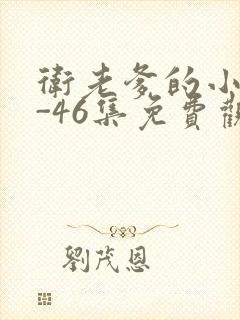 衛老爹的小
-46集免費觀
劉茂恩